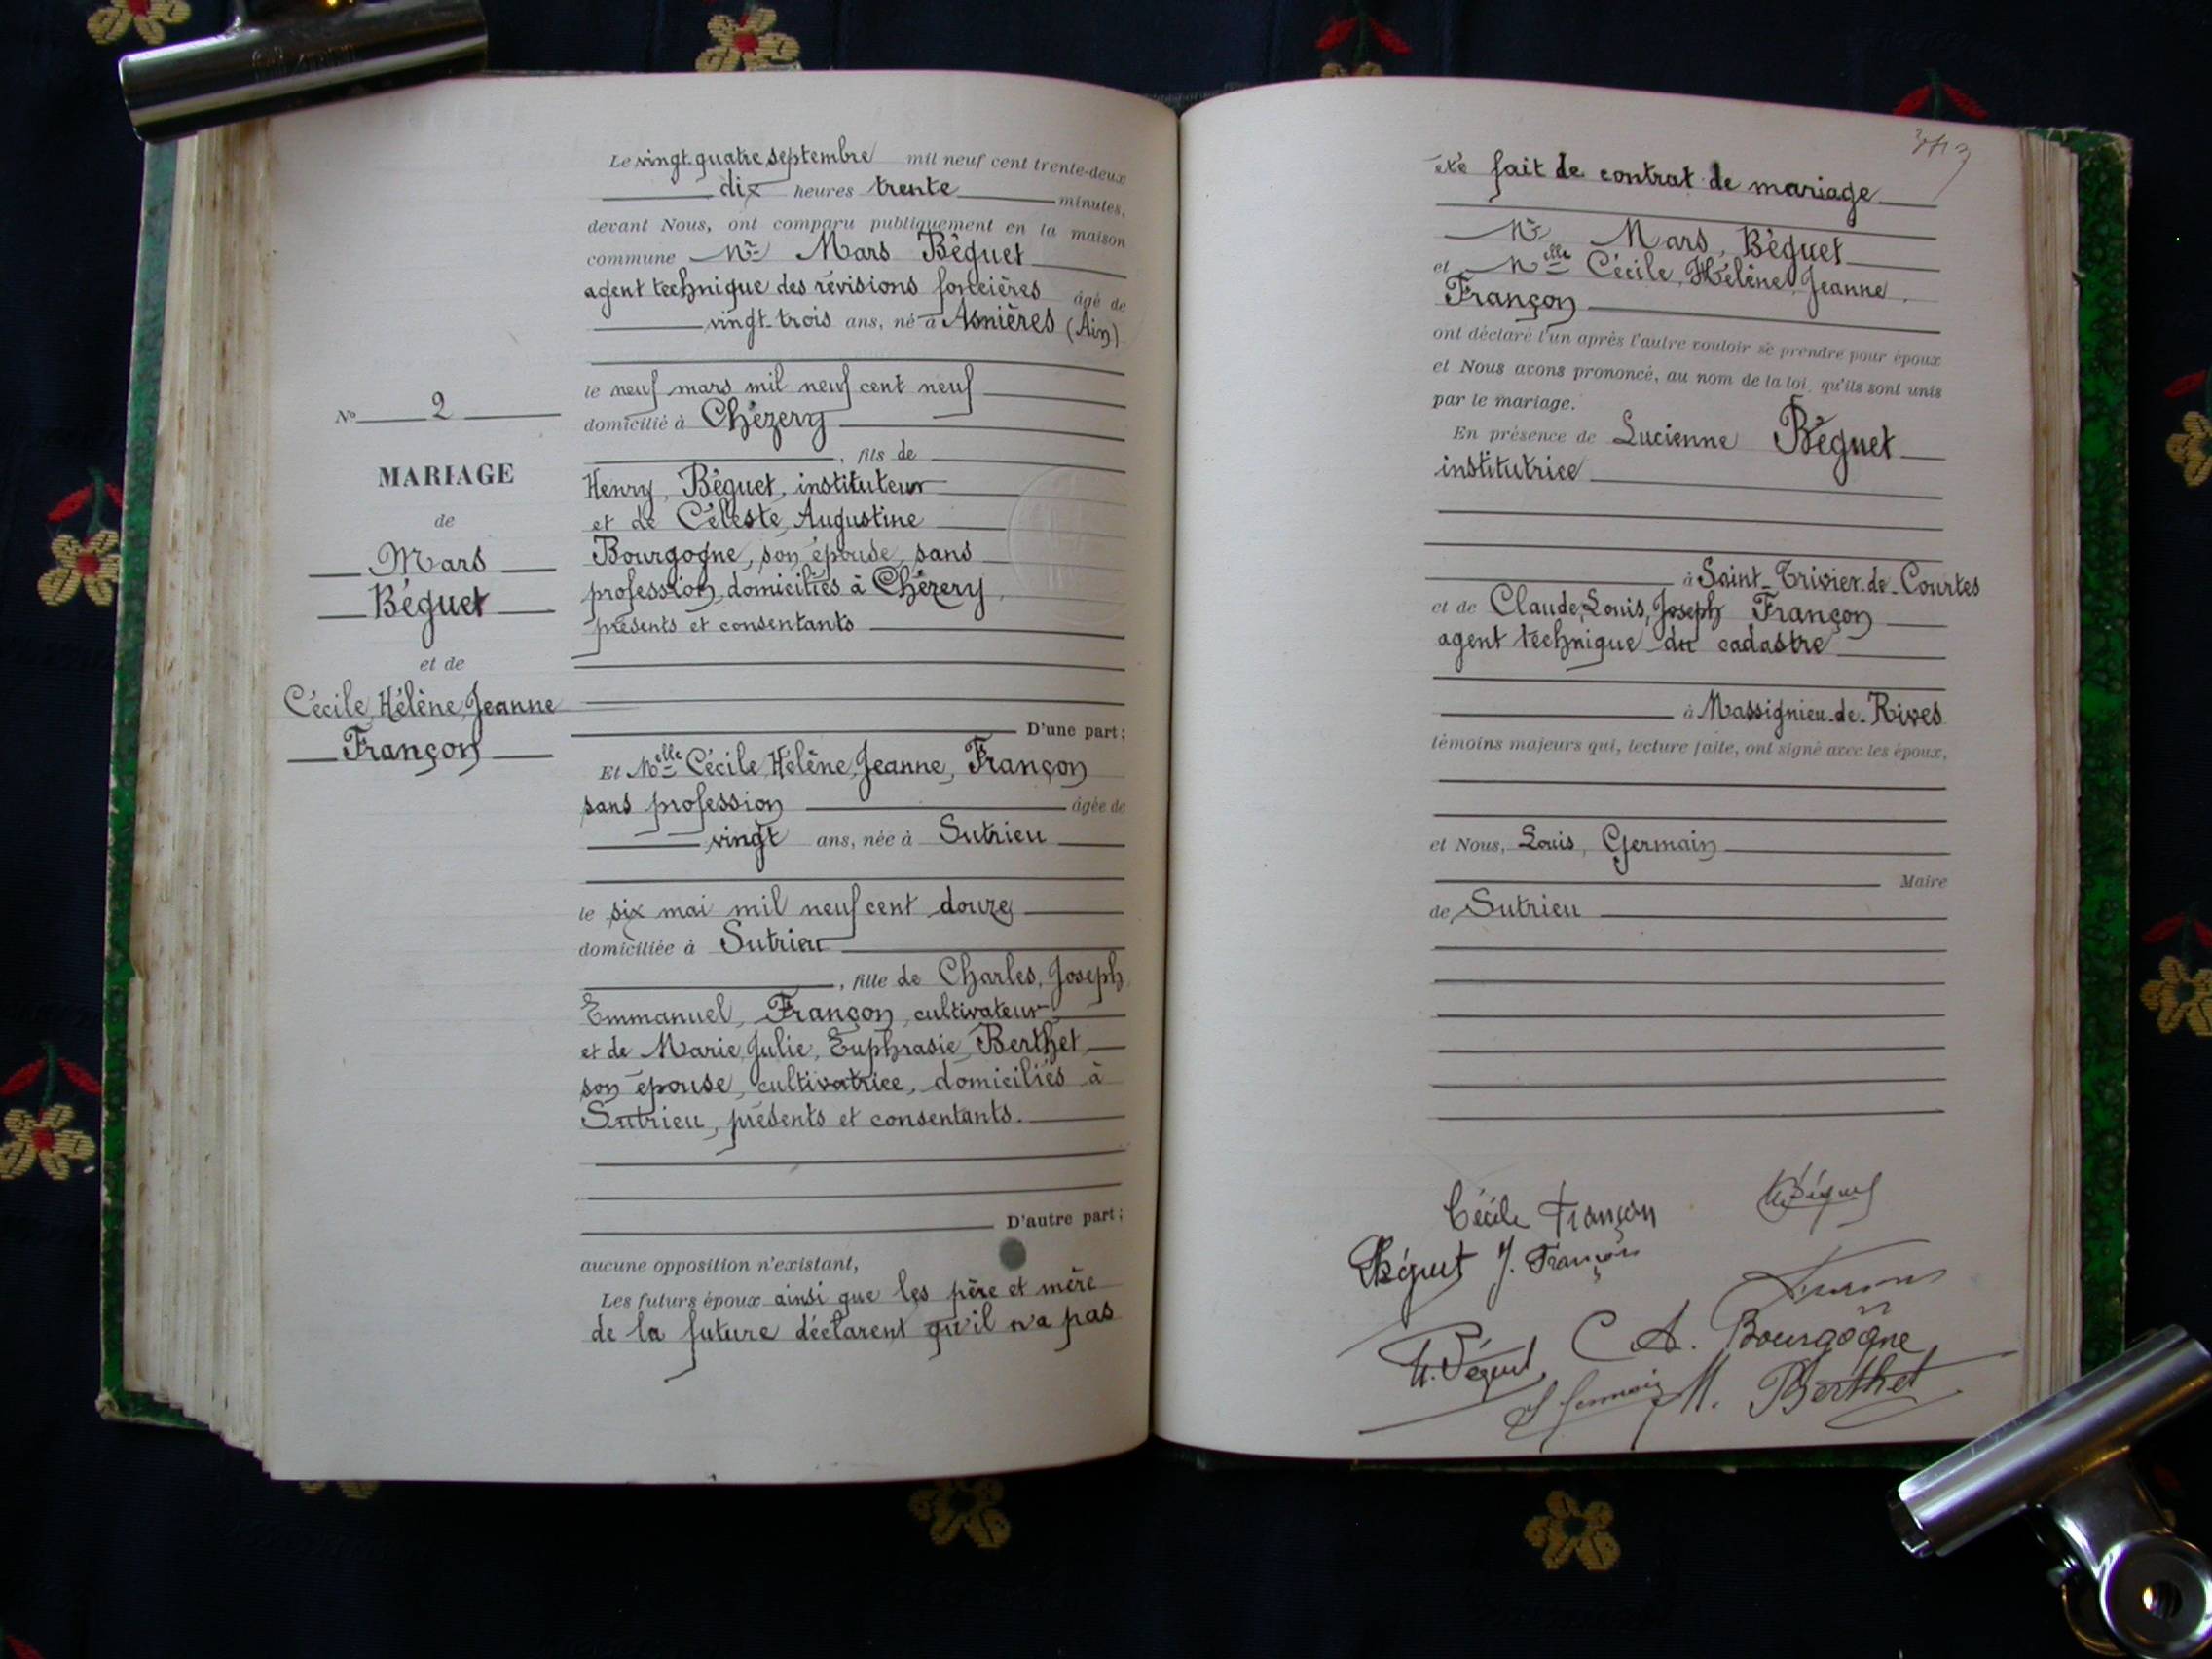 Le vingt-quatre septembre mil neuf cent trente-deux
dix heures trente minutes,
devant Nous, ont comparu publiquement en la maison
commune Mr Mars Béguet
agent technique des révisions foncières âgé de
vingt-trois ans, né à Asnières (Ain)
le neuf mars mil neuf cent neuf
domicilié à Chézery
, fils de
Henry, Béguet, instituteur
et de Céleste, Augustine
Bourgogne, son épouse, sans
profession, domiciliés à Chézery,
présents et consentants
D'une part;
Et Melle Cécile, Hélène, Jeanne, Françon
sans profession âgée de
vingt ans, née à Sutrieu
le six mai mil neuf cent douze
domiciliée à Sutrieu
, fille de Charles, Joseph
Emmanuel, Françon, cultivateur
et de Marie, Julie, Euphrasie, Berthet
son épouse, cultivatrice, domiciliés à
Sutrieu, présents et consentants.
D'autre part;
aucune opposition n'existant,
Les futurs époux ainsi que les père et mère
de la future déclarent qu'il n'a pas
No 2
MARIAGE
de
Mars
Béguet
et de
Cécile, Hélène, Jeanne
Françon
été fait de contrat de mariage
Mr Mars, Béguet
et Melle Cécile, Hélène, Jeanne,
Françon
ont déclaré l'un après l'autre vouloir se prendre pour époux
et Nous avons prononcé, au nom de la loi, qu'ils sont unis
par le mariage.
En présence de Lucienne Béguet
institutrice
à Saint-Trivier-de-Courtes
et de Claude, Louis, Joseph Françon
agent technique du cadastre
à Massignieu-de-Rives
témoins majeurs qui, lecture faite, ont signé avec les époux,
et Nous, Louis, Germain
Maire
de Sutrieu
Cécile Françon
Béguet J. Françon
H. Béguet C A. Bourgogne
L Germain M. Berthet